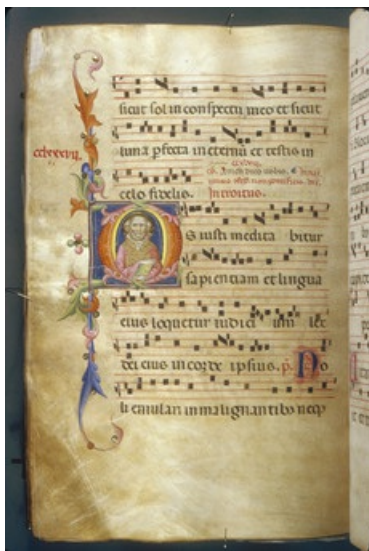 sicut sol in conspectu meo et sicut
luna pfecta in eternū et testis in
celo fidelis. Introitus.
OS iusti medita bitur
sapientiam et lingua
eius loquetur iudici um lex
dei eius in corde ipsius. p̄. No
li emulari in malignantibꝰ neqꝫ